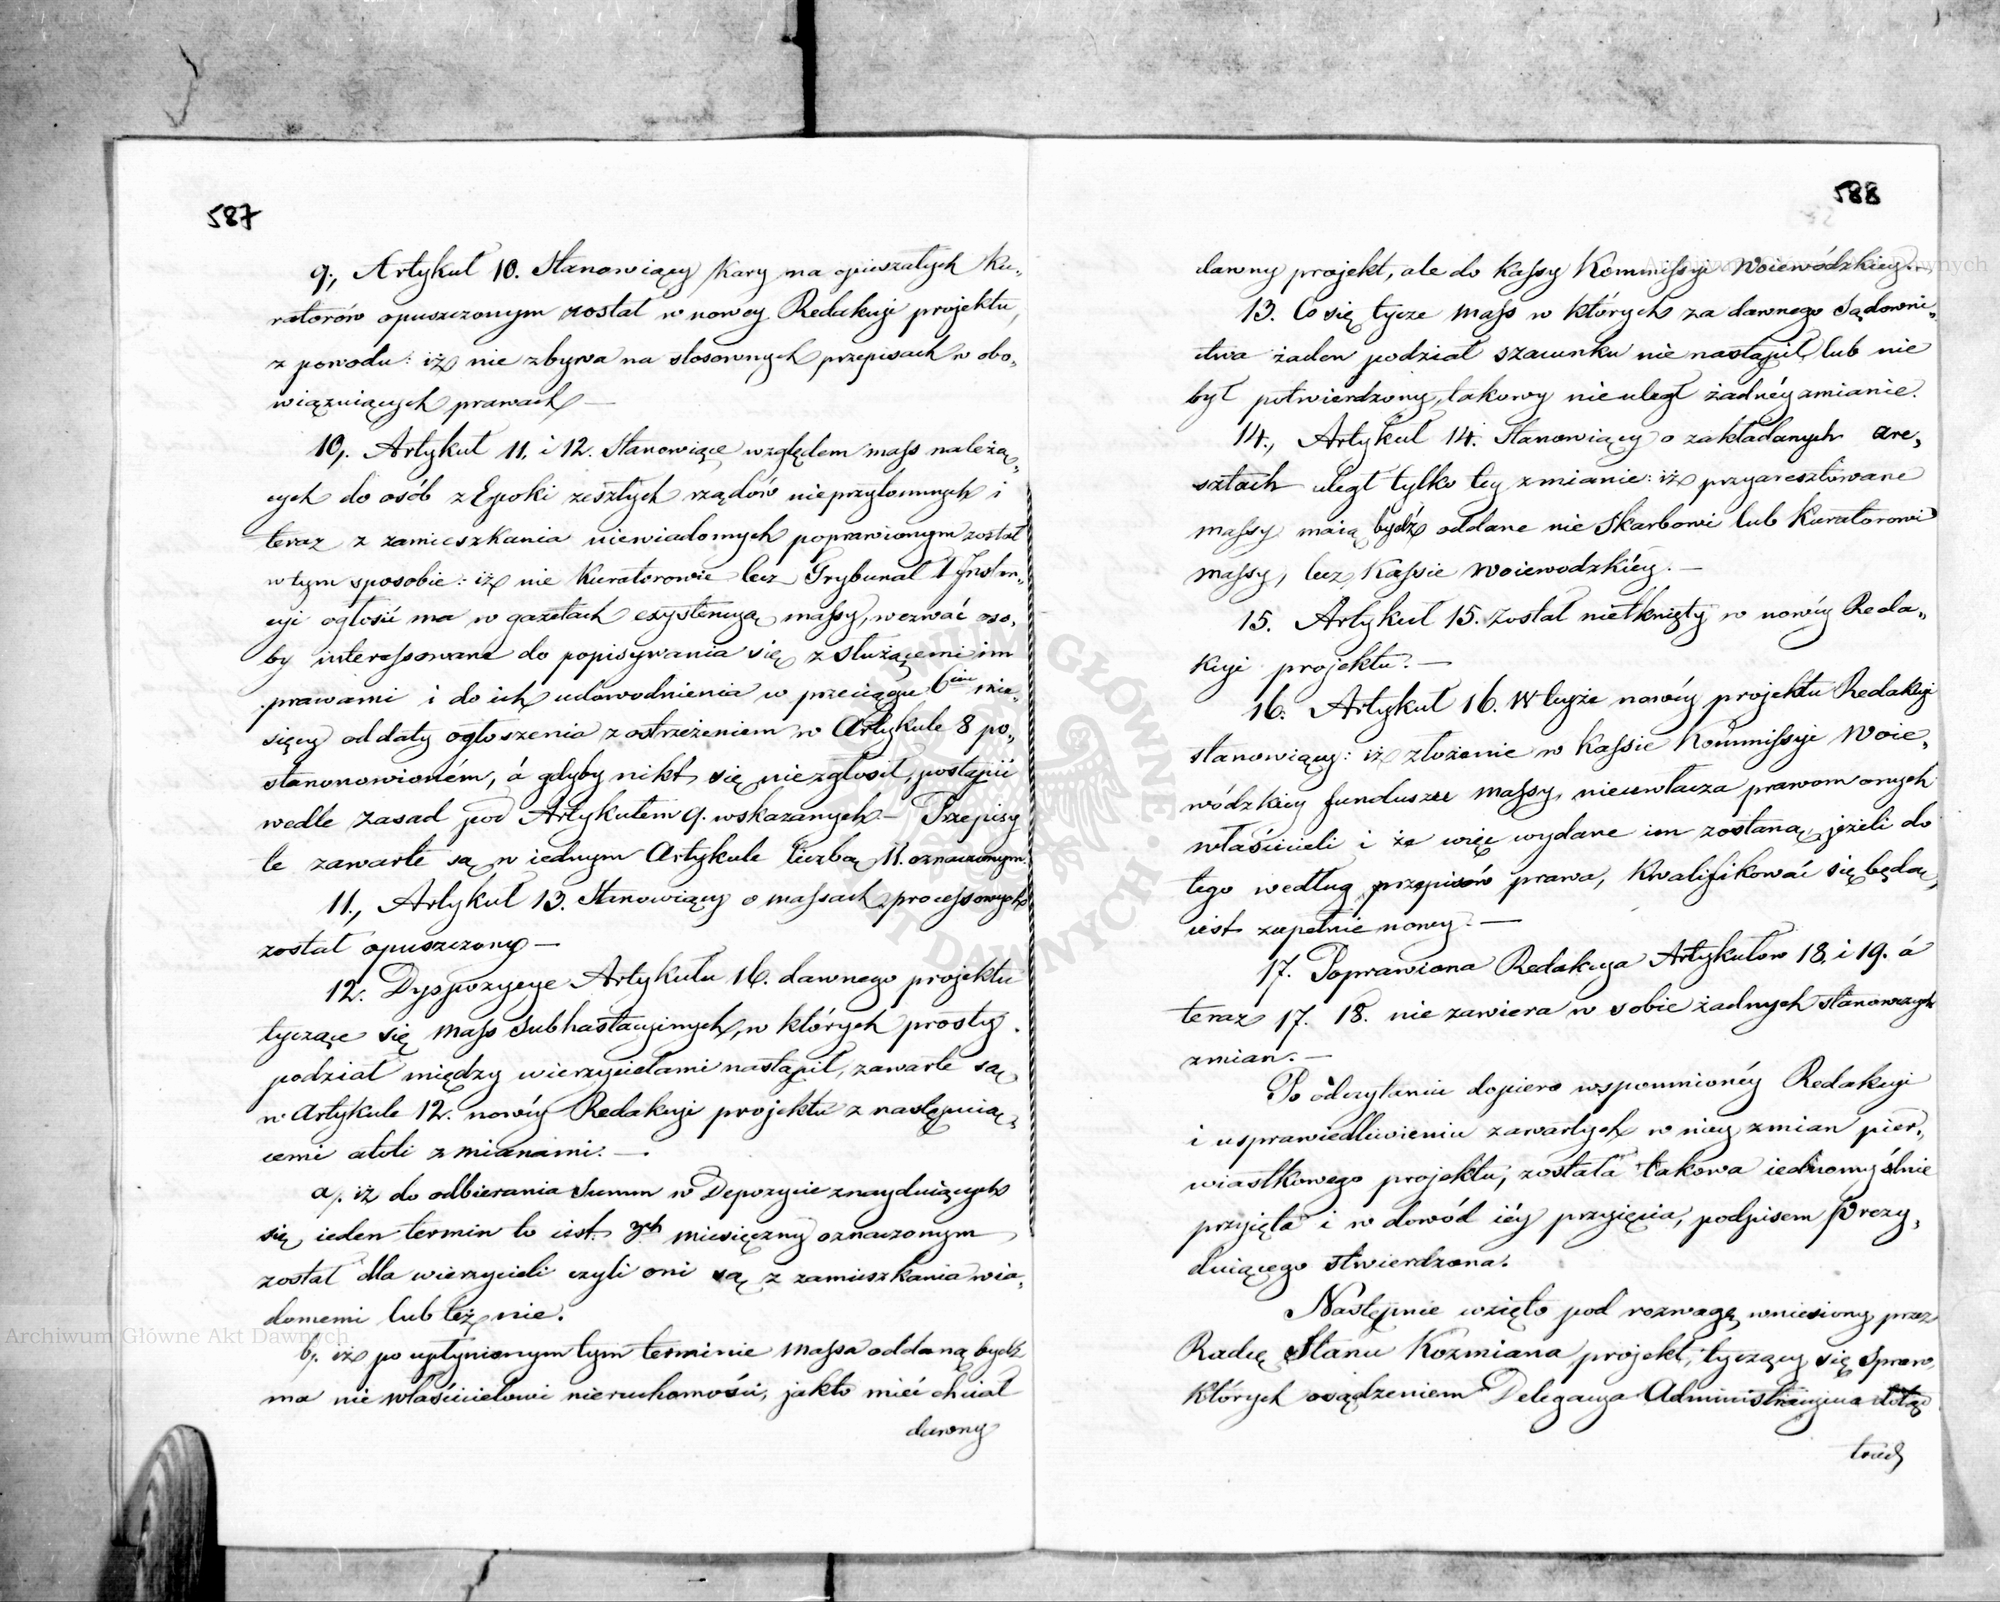 587
9., Artykuł 10. Stanowiący kary na opieszałych Ku-
ratorów opuszczonym został w nowey Redakcyi projektu,
z powodu: iż nie zbywa na stosownych przepisach w obo-
wiązuiących prawach —
10,. Artykuł 11. i 12. Stanowiące względem mass należą-
cych do osób z Epoki zeszłych rządów nieprzytomnych i
teraz z zamieszkania niewiadomych poprawionym został
w tym sposobie: iż nie Kuratorowie lecz Trybunał I Instan-
cyi ogłosić ma w gazetach exystencyą massy, wezwać oso-
by interessowane do popisywania się z służącemi im
prawami i do ich udowodnienia w przeciągu 6ciu mie-
sięcy od daty ogłoszenia z ostrzeżeniem w Artykule 8 po-
stanonowioném, á gdyby nikt się nie zgłosił, postąpić
wedle zasad pod Artykułem 9. wskazanych. — Przepisy
te zawarte są w iednym Artykule liczbą 11. oznaczonym.
11., Artykuł 13. Stanowiący o massach processowych
został opuszczony —
12. Dyspozycye Artykułu 16. dawnego projektu
tyczące się mass Subhastacyinych, w których prosty
podział między wierzycielami nastąpił, zawarte są
w Artykule 12. nowéy Redakcyi projektu z następuią-
cemi atoli zmianami. —
a,. iż do odbierania Summ w Depozycie znayduiących
się ieden termin to iest 3ch miesięczny oznaczonym
został dla wierzycieli czyli oni są z zamieszkania wia-
domemi lub też nie.
b,. iż po upłynionym tym terminie massa oddaną bydź
ma nie właścicielowi nieruchomości, jak to mieć chciał
dawny
588
dawny projekt, ale do Kassy Kommissyi Woiewódzkiey.
13. Co się tycze mass w których za dawnego sądowni-
ctwa żaden podział szacunku nie nastąpił lub nie
był potwierdzony, takowy nie uległ żadnéy zmianie.
14., Artykuł 14. Stanowiący o zakładanych are-
sztach uległ tylko tey zmianie: iż przyaresztowane
massy maią bydź oddane nie Skarbowi lub Kuratorowi
massy, lecz Kassie Woiewodzkiéy. —
15. Artykuł 15. został nietknięty w nowéy Reda-
kcyi projektu. —
16. Artykuł 16. W teyże nowéy projektu Redakcyi
stanowiący: iż złożenie w Kassie Kommissyi Woie-
wódzkiey funduszu massy, nieuwłacza prawom onych
właścicieli i że więc wydane im zostaną, jeżeli do
tego według przepisów prawa, kwalifikować się będą,
iest zupełnie nowy. —
17. Poprawiona Redakcya Artykułów 18. i 19. á
teraz 17. 18. nie zawiera w sobie żadnych stanowczych
zmian. —
Po odczytaniu dopiero wspomnionéy Redakcyi
i usprawiedliwieniu zawartych w niey zmian pier-
wiastkowego projektu, została takowa iednomyślnie
przyięta i w dowód iéy przyięcia, podpisem Prezy-
duiącego stwierdzona.
Następnie wzięto pod rozwagę wniesiony przez
Radcę Stanu Kozmiana projekt, tyczący się Spraw,
których osądzeniem Delegacya Administracyina